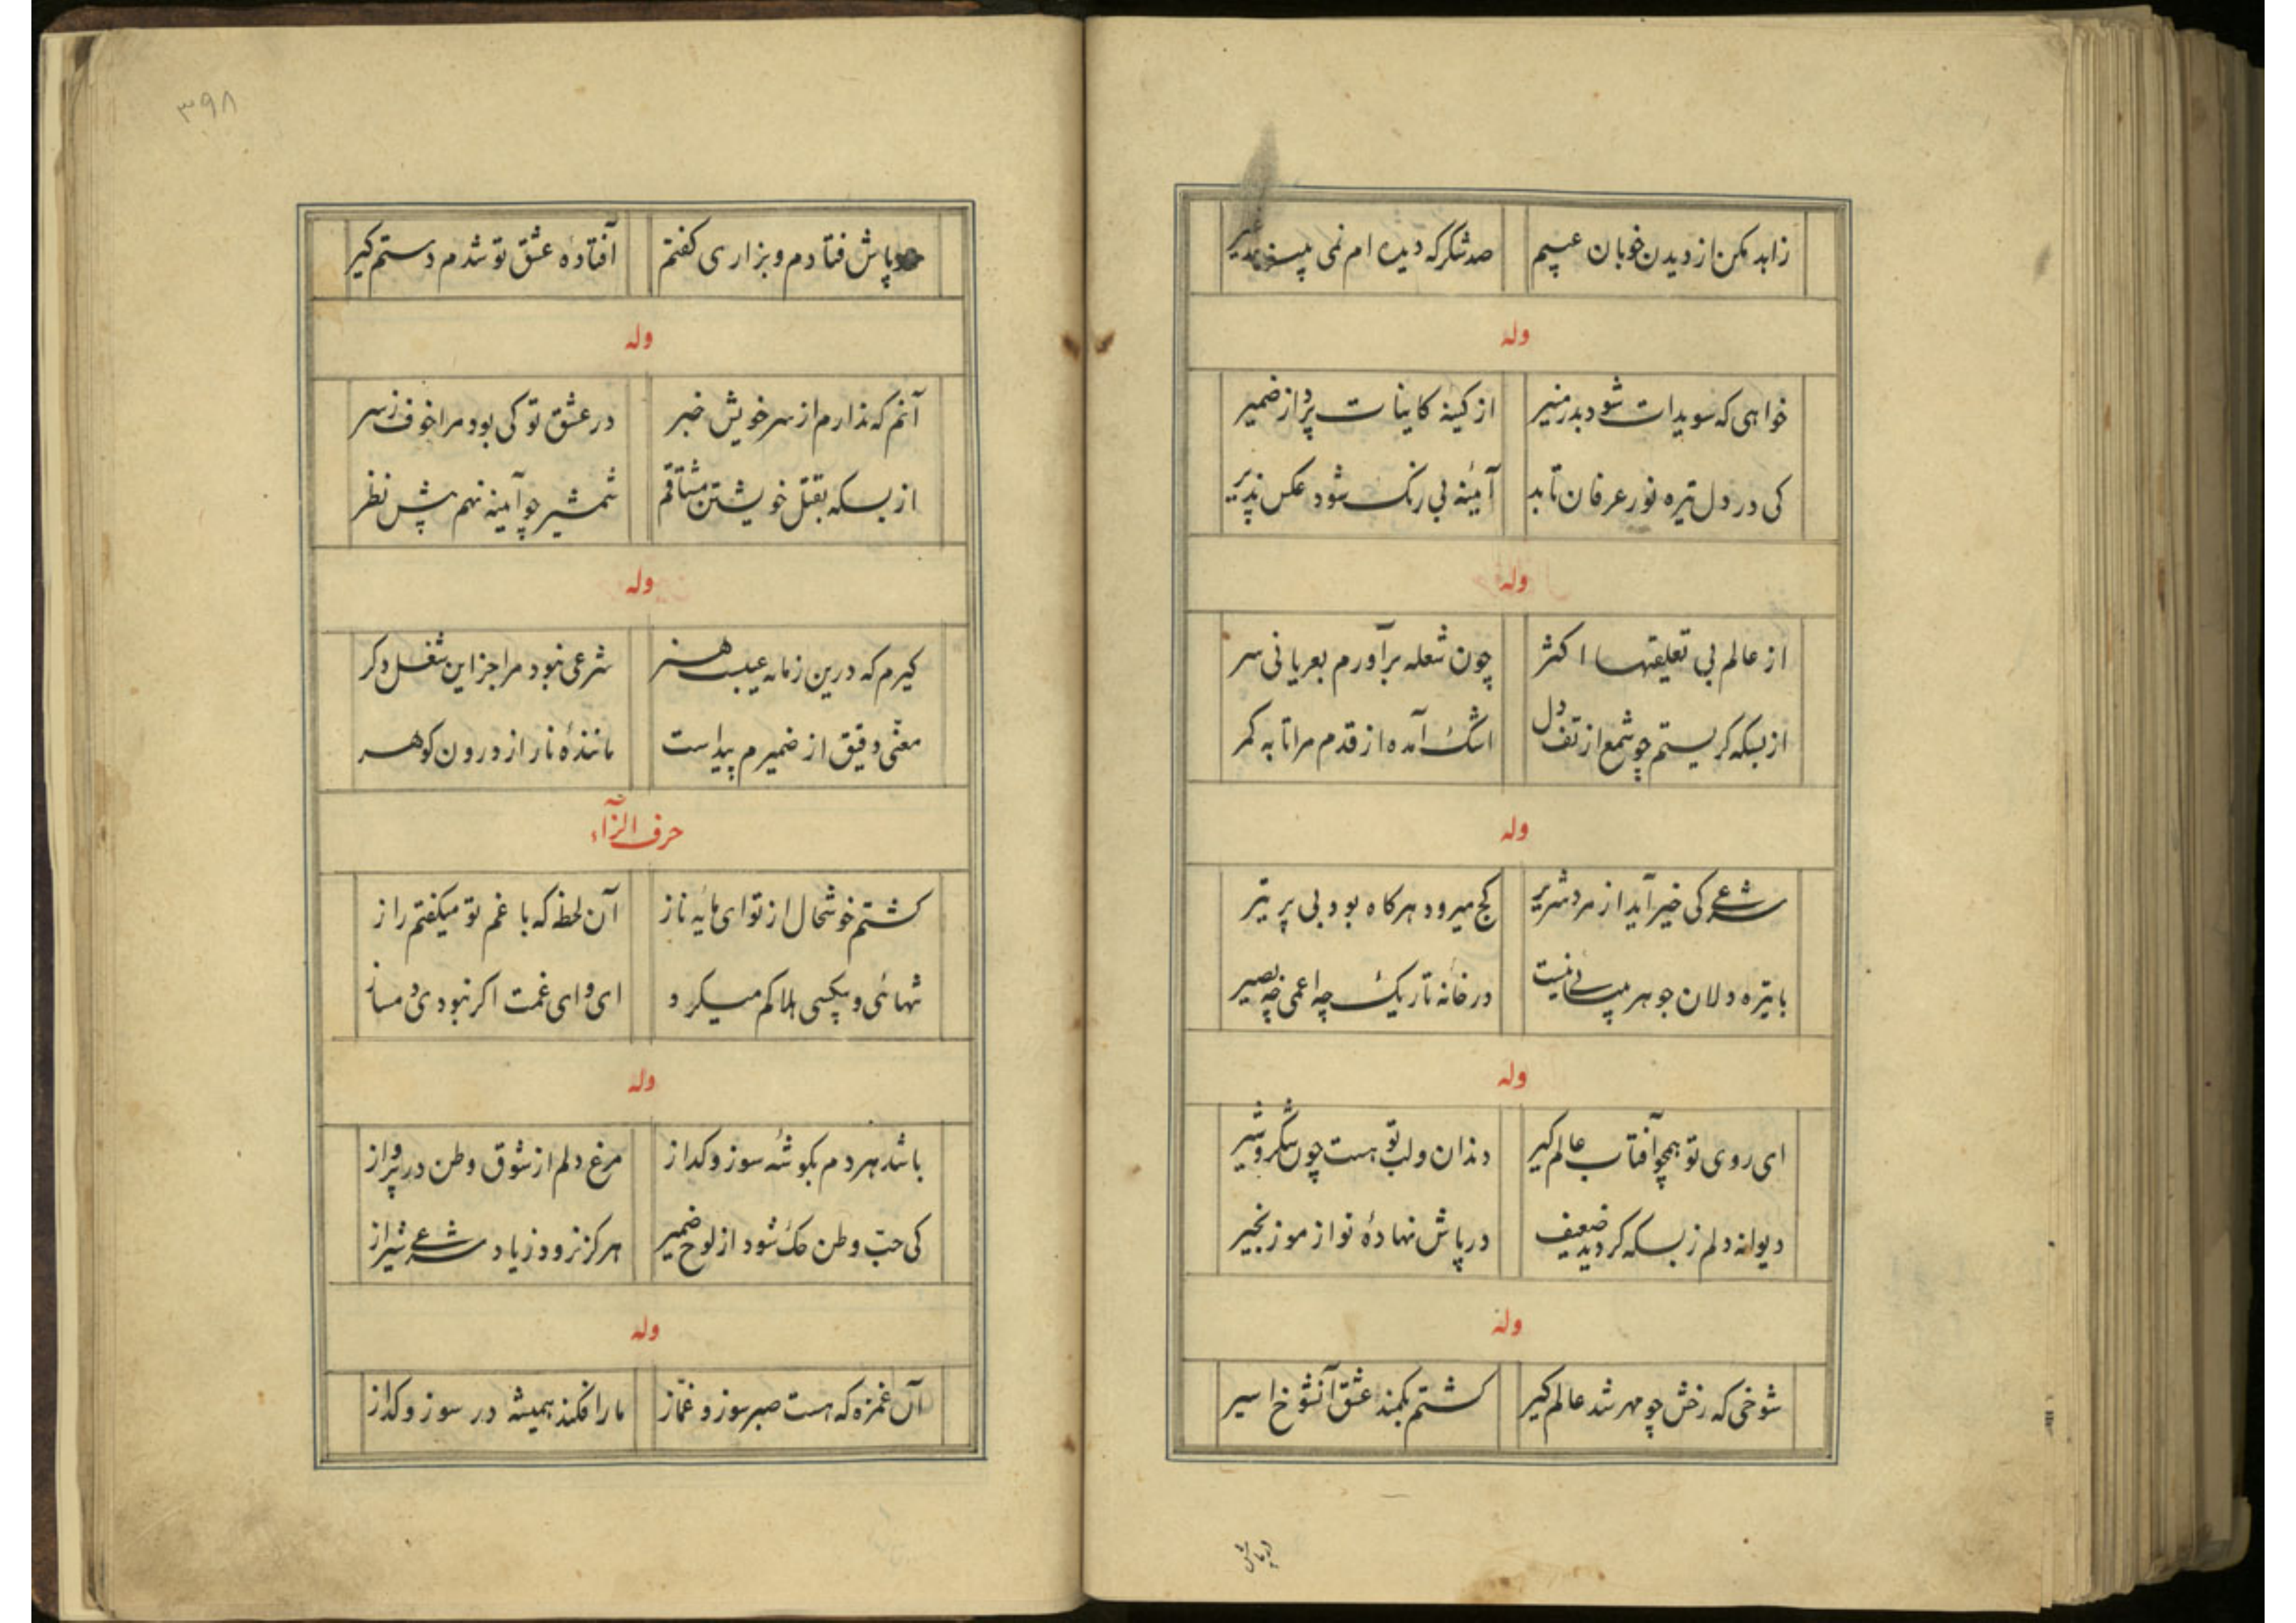 زاهد مکن از دیدن خوبان عیبم
صد شکر که دیده ام نمی
وله
خواهی که سویدات شود بدر منیر
از کینهٔ کاینات پرداز ضمیر
کی در دل تیره نور عرفان تابد
آئینهٔ بی زنک شود عکس پذیر
وله
از عالم بی تعلقیها اکثر
چون شعله برآورم بعریانی سر
از بسکه کریستم چو شمع از تف دل
اشک آمده از قدم مرا تا به کمر
وله
شرعی کی خیر آید از مرد شریر
کج میرود هرکاه بود بی پر تیر
با تیره دلان جوهر بینائی نیست
در خانه تاریک چه اعمی چه بصیر
وله
ای روی تو همچو آفتاب عالم کیر
دندان و لب تو هست چون شکر و شیر
دیوانه دلم ز بسکه کردید ضعیف
در پاش نهادهٔ تو از مو زنجیر
وله
شوخی که رخش چو مهر شد عالم کیر
کشتم بکمند عشق آنشوخ اسیر
در پاش
۳۹۸
در پاش فتادم و بزاری کفتم
افتادهٔ عشق تو شدم دستم کیر
وله
آنم که ندارم از سر خویش خبر
در عشق تو کی بود مرا خوف ز سر
از بسکه بقتل خویشتن مشتاقم
شمشیر چو آیینه نهم پیش نظر
وله
کیرم که درین زمانه عیبست هنر
شرعی نبود مرا جز این شغل دکر
معنی دقیق از ضمیرم پیداست
مانندهٔ نار از درون کوهر
حرف الزآء
کشتم خوشحال از تو ای مایهٔ ناز
آن لحظه که با غم تو میکفتم راز
تنهائی و بیکسی هلاکم میکرد
ای وای غمت اکر نبودی دمساز
وله
باشد هر دم بکوشهٔ سوز و کداز
مرغ دلم از شوق وطن در پرواز
کی حب وطن حک شود از لوح ضمیر
هرکز نرود ز یاد شرعی شیراز
وله
آن غمزه که هست صبر سوز و غماز
ما را فکند همیشه در سوز و کداز